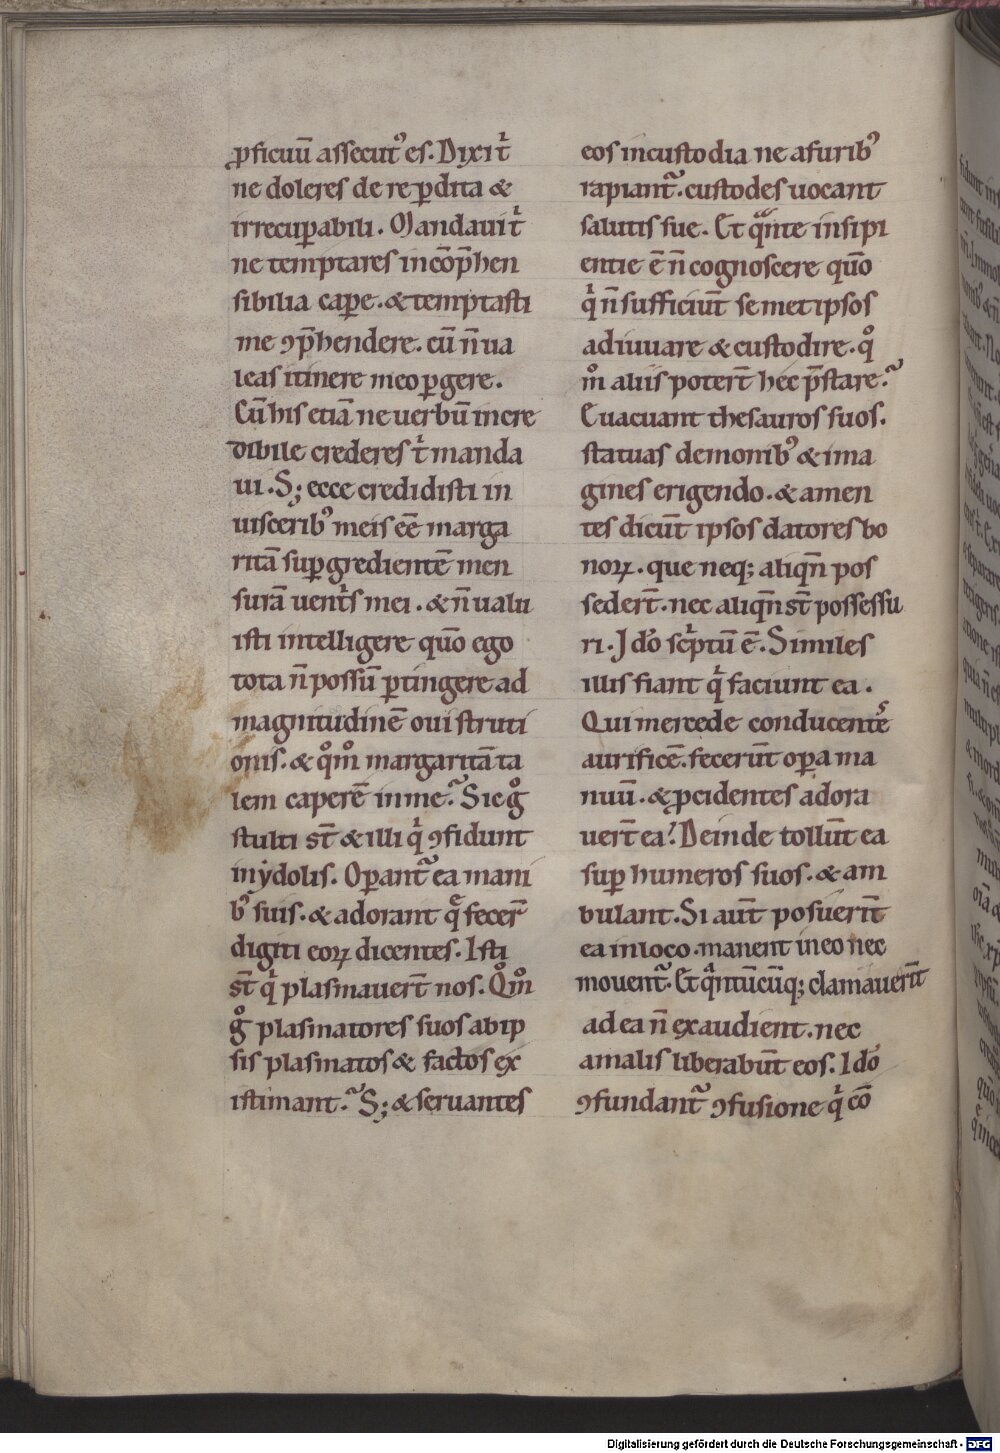 ꝓficuū assecut᾿ es. Dixi tͥ
ne doleres de re ꝑdita &
irrecuꝑabili. Mandaui tͥ
ne temptares incōp̄hen
sibilia caꝑe. & temptasti
me ꝯp̄hendere. cū n̄ ua
leas itinere meo ꝑgere.
Cū his etiā ne uerbū incre
dibile crederes tͥ manda
ui. S; ecce credidisti in
uiscerib᾿ meis eē marga
ritā suꝑgredientē men
surā uentͥs mei. & n̄ ualu
isti intelligere quō ego
tota n̄ possū ꝑtingere ad
magnitudinē oui struti
onis. & qͦmͦ margaritā ta
lem caperē in me? Sic gͦ
stulti st̄ & illi qͥ ꝯfidunt
in ẏdolis. Oꝑant᷑ ea mani
b᾿ suis. & adorant q̄ fecer̄
digiti eoꝝ dicentes. Isti
st̄ qͥ plasmauer̄t nos. Qͦmͦ
gͦ plasmatores suos ab ip
sis plasmatos & factos ex
istimant? S; & seruantes
eos in custodia ne a furib᾿
rapiant᷑. custodes uocant
salutis sue. Et qͣnte insipi
entie ē n̄ cognoscere quō
qͥ n̄ sufficiūt semet ipsos
adiuuare & custodire. qͦ
mͦ aliis poter̄t hec p̄stare?
Euacuant thesauros suos.
statuas demonib᾿ & ima
gines erigendo. & amen
tes dicūt ipsos datores bo
noꝝ. que neq; aliqn̄ pos
seder̄t. nec aliqn̄ st̄ possessu
ri. Idͦo scͥptū ē. Similes
illis fiant qͥ faciunt ea.
Qui mercede conducentes
aurificē. fecerūt oꝑa ma
nuū. & ꝓcidentes adora
uer̄t ea? Deinde tollūt ea
suꝑ humeros suos. & am
bulant. Si aut̄ posuerīt
ea in loco. manent in eo nec
mouent᷑. Et qͣntūcūq; clamauerīt
ad ea n̄ exaudient. nec
a malis liberabūt eos. Idͦo
ꝯfundant᷑ ꝯfusione qͥ cō
Digitalisierung gefördert durch die Deutsche Forschungsgemeinschaft - DFG